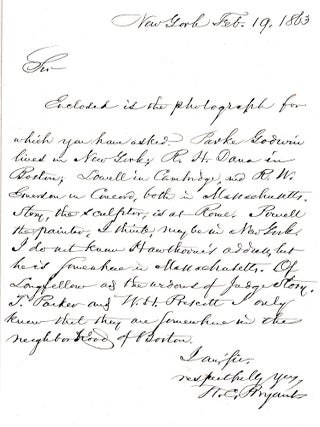 New York Feb. 19. 1863
Sir
Enclosed is the photograph for
which you have asked. Parke Godwin
lives in New York; R. H. Dana in
Boston; Lowell in Cambridge, and R. W.
Emerson in Concord, both in Massachusetts.
Story, the sculptor, is at Rome. Powell
the painter, I think, may be in New York.
I do not know Hawthorne's address, but
he is somewhere in Massachusetts. Of
Longfellow and the of Judge Story,
T. Parker and W. H. Prescott I only
know that they are somewhere in the
neighborhood of Boston.
I am, sir,
respectfully yrs,
W. C. Bryant